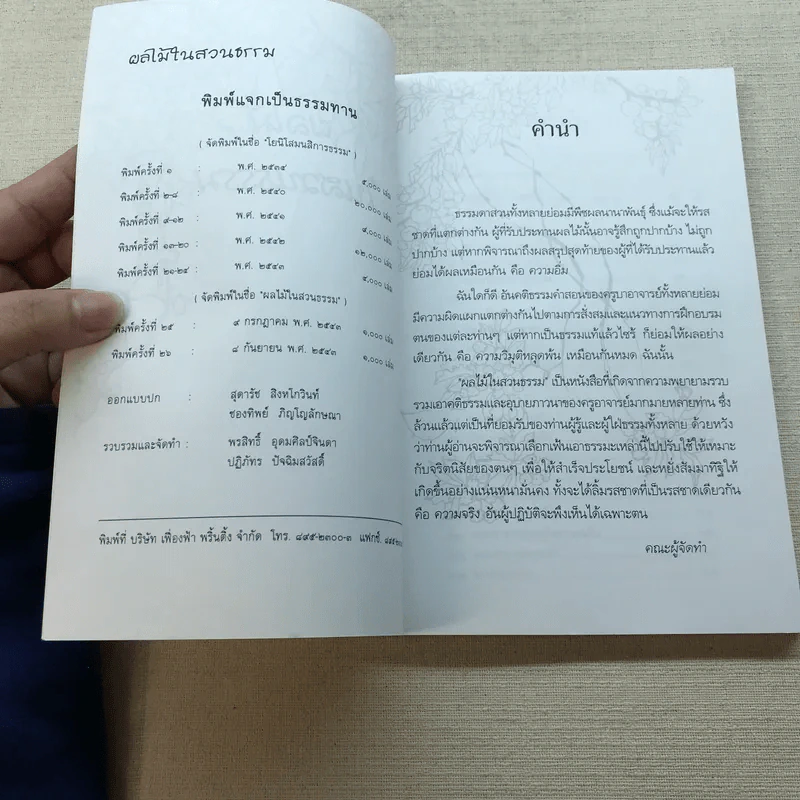 ผลไม้ในสวนธรรม
พิมพ์แจกเป็นธรรมทาน
( จัดพิมพ์ในชื่อ "โยนิโสมนสิการธรรม" )
พิมพ์ครั้งที่ ๑ : พ.ศ. ๒๕๓๙ ๕,๐๐๐ เล่ม
พิมพ์ครั้งที่ ๒-๘ : พ.ศ. ๒๕๔๐ ๒๐,๐๐๐ เล่ม
พิมพ์ครั้งที่ ๙-๑๒ : พ.ศ. ๒๕๔๑ ๘,๐๐๐ เล่ม
พิมพ์ครั้งที่ ๑๓-๒๐ : พ.ศ. ๒๕๔๒ ๑๒,๐๐๐ เล่ม
พิมพ์ครั้งที่ ๒๑-๒๔ : พ.ศ. ๒๕๔๓ ๕,๐๐๐ เล่ม
( จัดพิมพ์ในชื่อ "ผลไม้ในสวนธรรม" )
พิมพ์ครั้งที่ ๒๕ : ๙ กรกฎาคม พ.ศ. ๒๕๔๓ ๑,๐๐๐ เล่ม
พิมพ์ครั้งที่ ๒๖ : ๘ กันยายน พ.ศ. ๒๕๔๓ ๑,๐๐๐ เล่ม
ออกแบบปก : สุดารัช สิงหโกวินท์
ชองทิพย์ ภิญโญลักษณา
รวบรวมและจัดทำ : พรสิทธิ์ อุดมศิลป์จินดา
ปฏิภัทร ปัจฉิมสวัสดิ์
พิมพ์ที่ บริษัท เฟื่องฟ้า พริ้นติ้ง จำกัด โทร. ๘๙๕-๒๓๐๐-๓ แฟกซ์.
คำนำ
ธรรมดาสวนทั้งหลายย่อมมีพืชผลนานาพันธุ์ ซึ่งแม้จะให้รส
ชาดที่แตกต่างกัน ผู้ที่รับประทานผลไม้นั้นอาจรู้สึกถูกปากบ้าง ไม่ถูก
ปากบ้าง แต่หากพิจารณาถึงผลสรุปสุดท้ายของผู้ที่ได้รับประทานแล้ว
ย่อมได้ผลเหมือนกัน คือ ความอิ่ม
ฉันใดก็ดี อันคติธรรมคำสอนของครูบาอาจารย์ทั้งหลายย่อม
มีความผิดแผกแตกต่างกันไปตามการสั่งสมและแนวทางการฝึกอบรม
ตนของแต่ละท่านๆ แต่หากเป็นธรรมแท้แล้วไซร้ ก็ย่อมให้ผลอย่าง
เดียวกัน คือ ความวิมุติหลุดพ้น เหมือนกันหมด ฉันนั้น
"ผลไม้ในสวนธรรม" เป็นหนังสือที่เกิดจากความพยายามรวบ
รวมเอาคติธรรมและอุบายภาวนาของครูอาจารย์มากมายหลายท่าน ซึ่ง
ล้วนแล้วแต่เป็นที่ยอมรับของท่านผู้รู้และผู้ใฝ่ธรรมทั้งหลาย ด้วยหวัง
ว่าท่านผู้อ่านจะพิจารณาเลือกเฟ้นเอาธรรมะเหล่านี้ไปปรับใช้ให้เหมาะ
กับจริตนิสัยของตนๆ เพื่อให้สำเร็จประโยชน์ และหยั่งสัมมาทิฐิให้
เกิดขึ้นอย่างแน่นหนามั่นคง ทั้งจะได้ลิ้มรสชาดที่เป็นรสชาดเดียวกัน
คือ ความจริง อันผู้ปฏิบัติจะพึงเห็นได้เฉพาะตน
คณะผู้จัดทำ